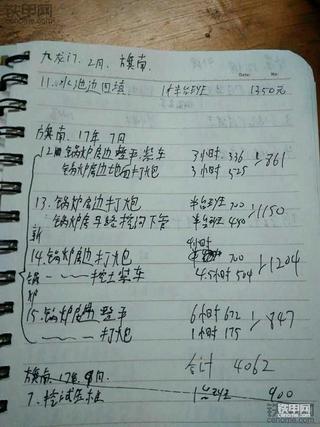 九龙门. 2月. 旗南.
11. 水池边回填 1350元
旗南. 17年 7月
12 锅炉房边整平装车 3小时 336
锅炉房边地面打炮 3小时 525
861
13. 锅炉房边打炮 半台班 700
锅炉房 下管 半台班 450
1150
新
14. 锅炉房边打炮 700
4小时
锅 挖土装车 4.5小时 504
1204
炉
15. 锅炉房边整平 6小时 672
打炮 1小时 175
847
合计 4062
旗南. 17年 9月.
7. 挖试压桩 1台班 900
铁甲网